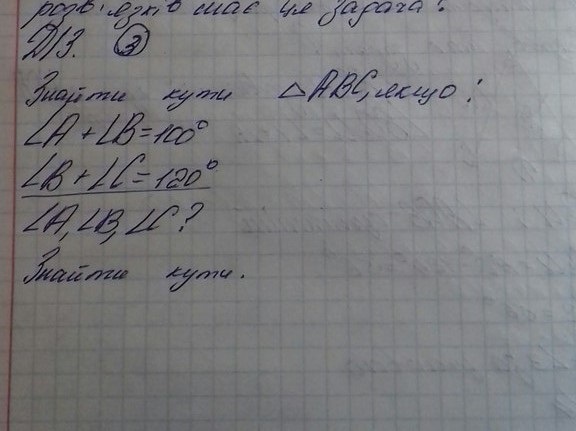 розв'язків має ця задача?
Д/З. ③
Знайти кути △ABC, якщо:
∠A + ∠B = 100°
∠B + ∠C = 120°
∠A, ∠B, ∠C?
Знайти кути.